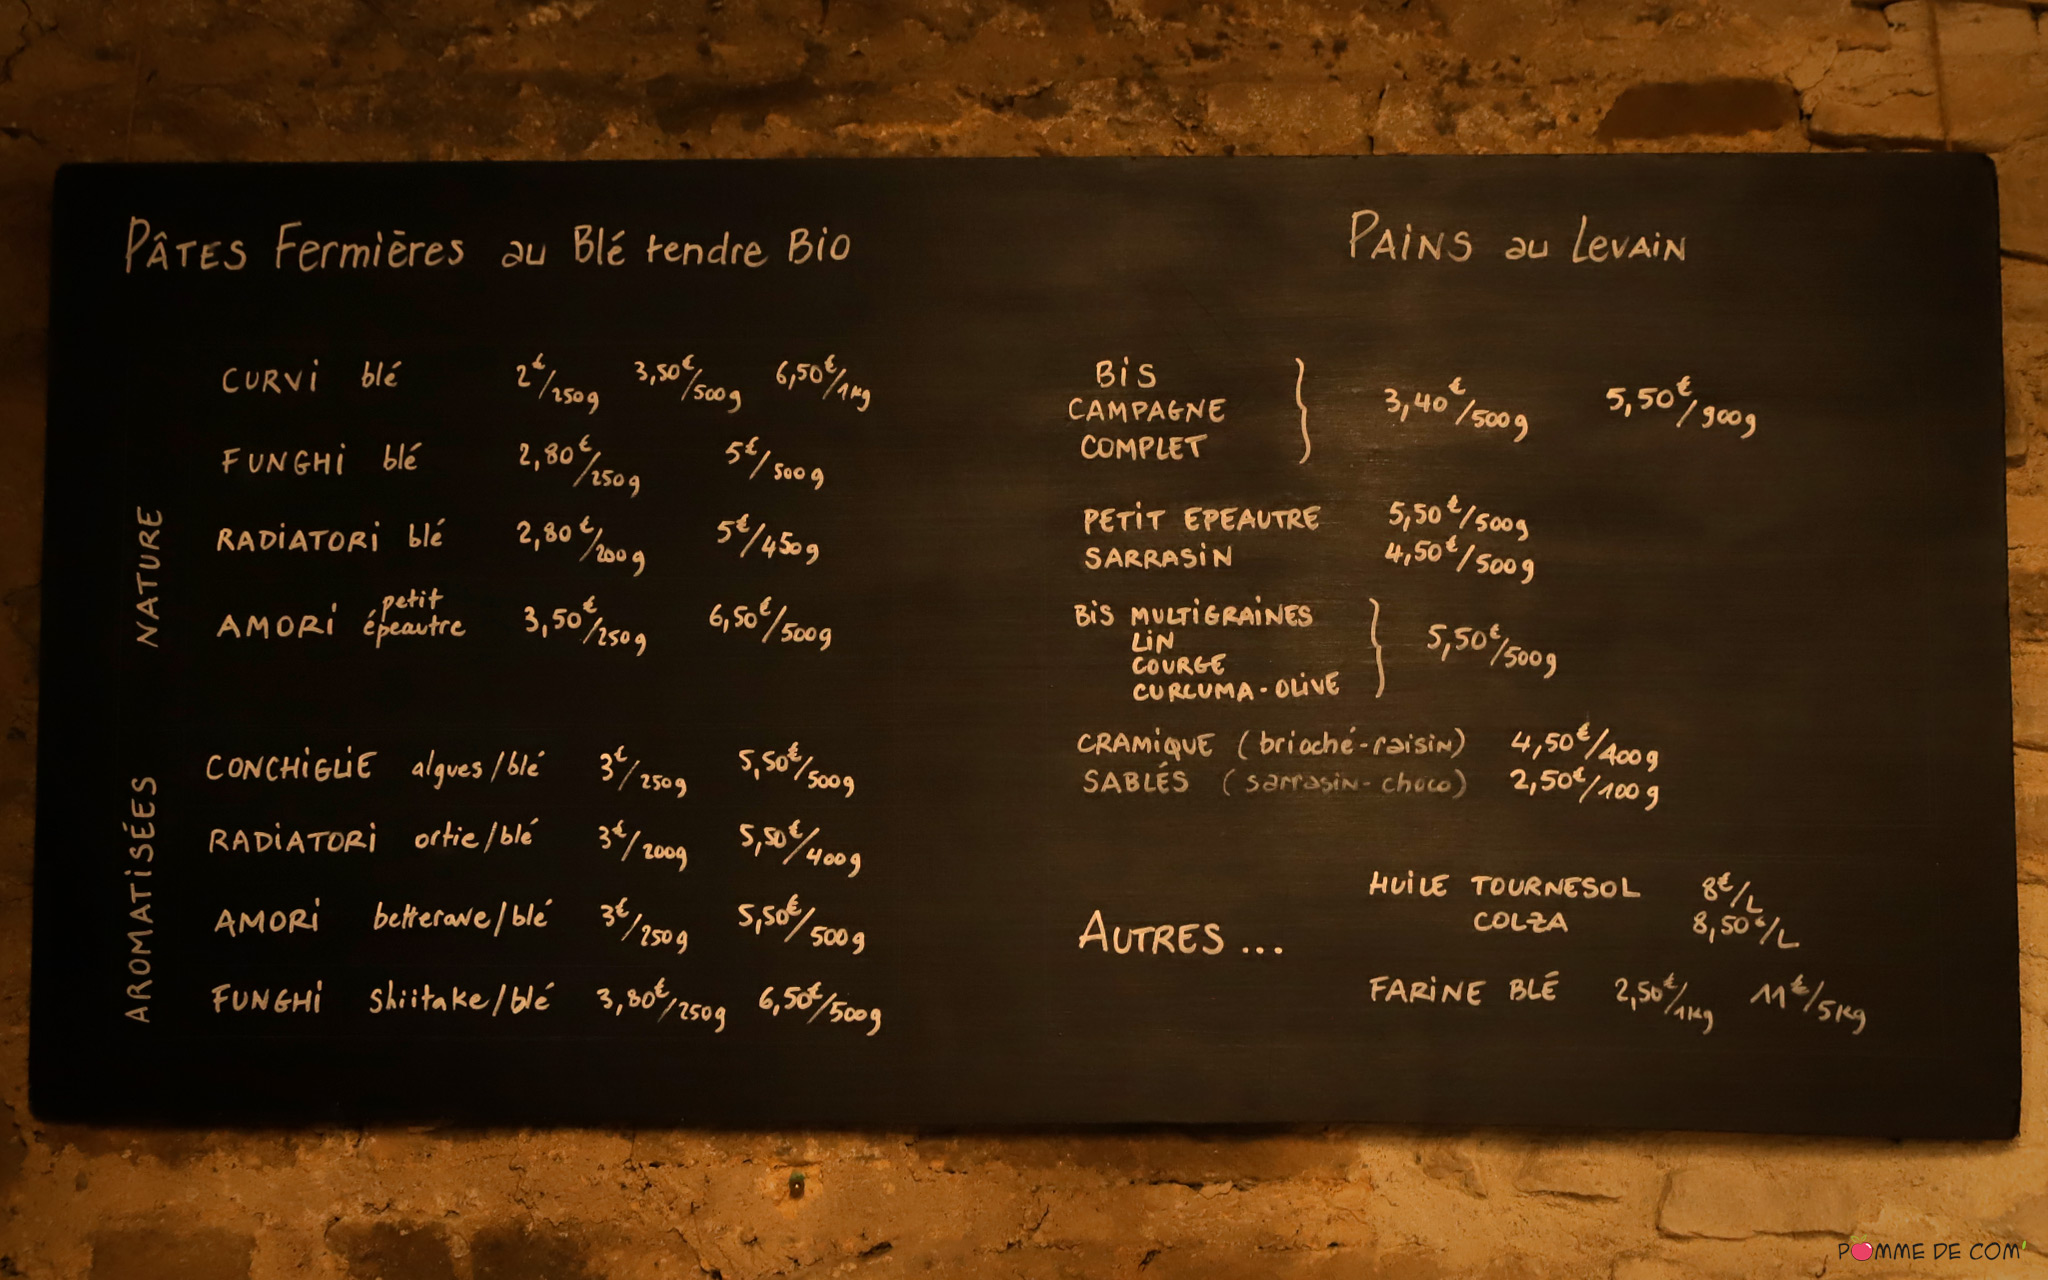 PÂTES Fermières au Blé tendre Bio
NATURE
CURVI blé 2€/250g 3,50€/500g 6,50€/1kg
FUNGHI blé 2,80€/250g 5€/500g
RADIATORI blé 2,80€/200g 5€/450g
AMORI petit épeautre 3,50€/250g 6,50€/500g
AROMATISÉES
CONCHIGLIE algues/blé 3€/250g 5,50€/500g
RADIATORI ortie/blé 3€/200g 5,50€/400g
AMORI betterave/blé 3€/250g 5,50€/500g
FUNGHI shiitake/blé 3,80€/250g 6,50€/500g
PAINS au LEVAIN
BIS
CAMPAGNE
COMPLET
3,40€/500g 5,50€/900g
PETIT EPEAUTRE 5,50€/500g
SARRASIN 4,50€/500g
BIS MULTIGRAINES
LIN
COURGE
CURCUMA-OLIVE
5,50€/500g
CRAMIQUE (brioché-raisin) 4,50€/400g
SABLÉS (sarrasin-choco) 2,50€/100g
AUTRES ...
HUILE TOURNESOL 8€/L
COLZA 8,50€/L
FARINE BLÉ 2,50€/1kg 11€/5kg
POMME DE COM'